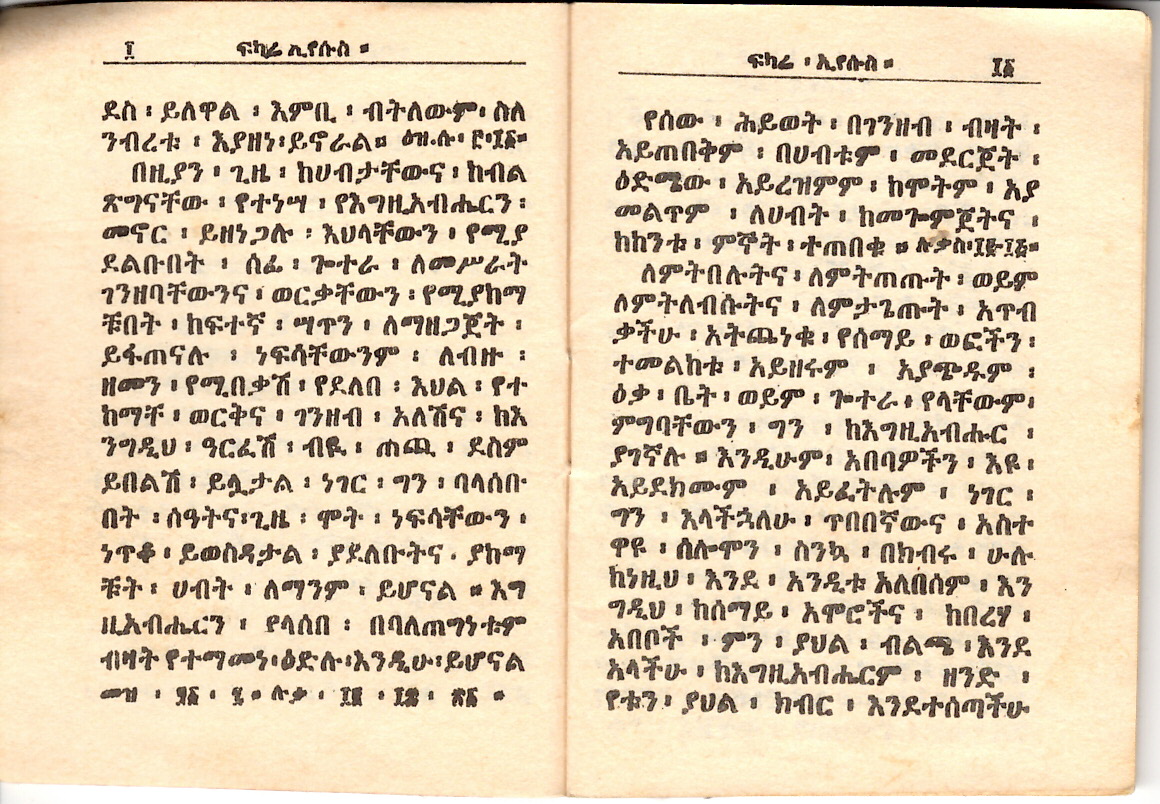 ፲ ፍካሬ ኢየሱስ ።
ደስ ፡ ይለዋል ፡ እምቢ ፡ ብትለውም ፡ ስለ
ንብረቱ ፡ እያዘነ ፡ ይኖራል ። ዕዝ.ሱ ፡
በዚያን ፡ ጊዜ ፡ ከሀብታቸውና ፡ ከብል
ጽግናቸው ፡ የተነሣ ፡ የእግዚአብሔርን ፡
መኖር ፡ ይዘነጋሉ ፡ እህላቸውን ፡ የሚያ
ደልቡበት ፡ ሰፊ ፡ ጐተራ ፡ ለመሥራት
ገንዘባቸውንና ፡ ወርቃቸውን ፡ የሚያከማ
ቹበት ፡ ከፍተኛ ፡ ሣጥን ፡ ለማዘጋጀት ፡
ይፋጠናሉ ፡ ነፍሳቸውንም ፡ ለብዙ ፡
ዘመን ፡ የሚበቃሽ ፡ የደለበ ፡ እህል ፡ የተ
ከማቸ ፡ ወርቅና ፡ ገንዘብ ፡ አለሽና ፡ ከእ
ንግዲህ ፡ ዓርፈሽ ፡ ብዪ ፡ ጠጪ ፡ ደስም
ይበልሽ ፡ ይሏታል ፡ ነገር ፡ ግን ፡ ባላሰቡ
በት ፡ ሰዓትና ፡ ጊዜ ፡ ሞት ፡ ነፍሳቸውን ፡
ነጥቆ ፡ ይወስዳታል ፡ ያደለቡትና ፡ ያከማ
ቹት ፡ ሀብት ፡ ለማንም ፡ ይሆናል ። እግ
ዚአብሔርን ፡ ያላሰበ ፡ በባለጠግነቱም
ብዛት የተማመነ ፡ ዕድሉ ፡ እንዲሁ ፡ ይሆናል
መዝ ፡ ፶፩ ፡ ፯ ። ሉቃ ፡ ፲፪ ፡
ፍካሬ ፡ ኢየሱስ ። ፲፩
የሰው ፡ ሕይወት ፡ በገንዘብ ፡ ብዛት ፡
አይጠበቅም ፡ በሀብቱም ፡ መደርጀት ፡
ዕድሜው ፡ አይረዝምም ፡ ከሞትም ፡ አያ
መልጥም ፡ ለሀብት ፡ ከመጐምጀትና ፡
ከከንቱ ፡ ምኞት ፡ ተጠበቁ ። ሉቃስ ፡ ፲፪ ፡ ፲፭ ።
ለምትበሉትና ፡ ለምትጠጡት ፡ ወይም
ለምትለብሱትና ፡ ለምታጌጡት ፡ አጥብ
ቃችሁ ፡ አትጨነቁ ፡ የሰማይ ፡ ወፎችን ፡
ተመልከቱ ፡ አይዘሩም ፡ አያጭዱም ፡
ዕቃ ፡ ቤት ፡ ወይም ፡ ጐተራ ፡ የላቸውም ፡
ምግባቸውን ፡ ግን ፡ ከእግዚአብሔር ፡
ያገኛሉ ። እንዲሁም ፡ አበባዎችን ፡ እዩ ፡
አይደክሙም ፡ አይፈትሉም ፡ ነገር ፡
ግን ፡ እላችኋለሁ ፡ ጥበበኛውና ፡ አስተ
ዋዩ ፡ ሰሎሞን ፡ ስንኳ ፡ በክብሩ ፡ ሁሉ
ከነዚህ ፡ እንደ ፡ አንዲቱ አለበሰም ፡ እን
ግዲህ ፡ ከሰማይ ፡ አሞሮችና ፡ ከበረሃ ፡
አበቦች ፡ ምን ፡ ያህል ፡ ብልጫ ፡ እንደ
አላችሁ ፡ ከእግዚአብሔርም ፡ ዘንድ ፡
የቱን ፡ ያህል ፡ ክብር ፡ እንደተሰጣችሁ